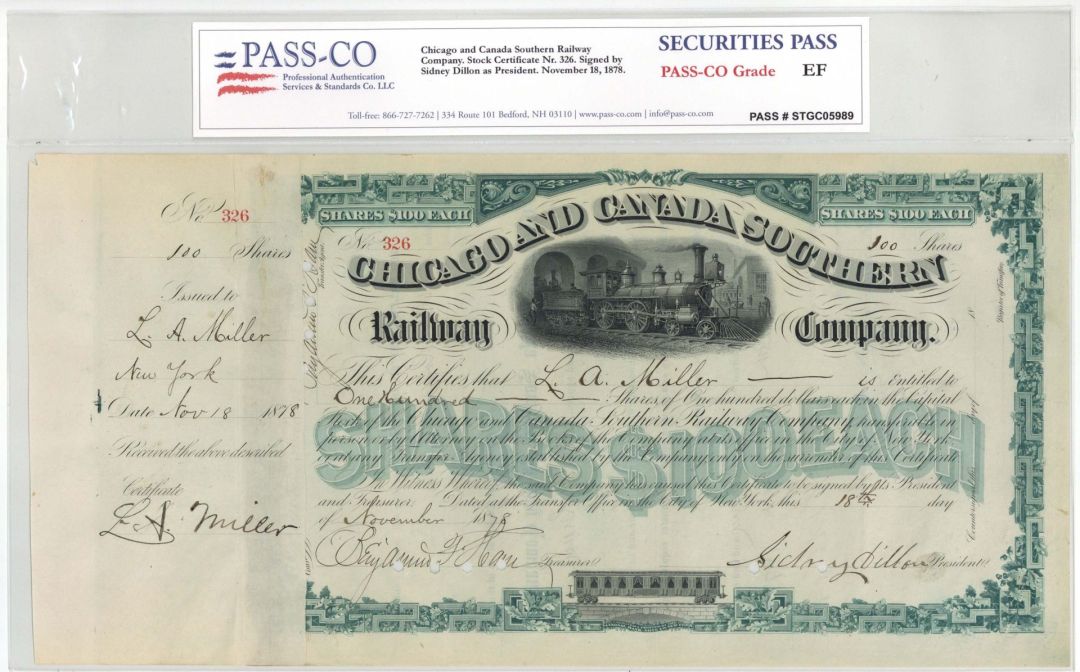 PASS-CO
Professional Authentication
Services & Standards Co. LLC
Chicago and Canada Southern Railway
Company. Stock Certificate Nr. 326. Signed by
Sidney Dillon as President. November 18, 1878.
SECURITIES PASS
PASS-CO Grade EF
Toll-free: 866-727-7262 | 334 Route 101 Bedford, NH 03110 | www.pass-co.com | info@pass-co.com
PASS # STGC05989
No. 326
100 Shares
Issued to
L. A. Miller
New York
Date Nov 18 1878
Received the above described
Certificate
L. A. Miller
SHARES $100 EACH
SHARES $100 EACH
No. 326
100 Shares
CHICAGO AND CANADA SOUTHERN
Railway Company.
This Certifies that L. A. Miller is Entitled to
One Hundred Shares of One hundred dollars each in the Capital
Stock of the Chicago and Canada Southern Railway Company, transferable in
person or by Attorney on the Books of the Company at its office in the City of New York
or at any Transfer Agency established by the Company only on the surrender of this Certificate
SHARES $100. EACH
In Witness Whereof, the said Company has caused this Certificate to be signed by its President
and Treasurer. Dated at the Transfer Office in the City of New York, this 18th day
of November 1878
Treasurer
Sidney Dillon President
Transfer Agent
Register of Transfers